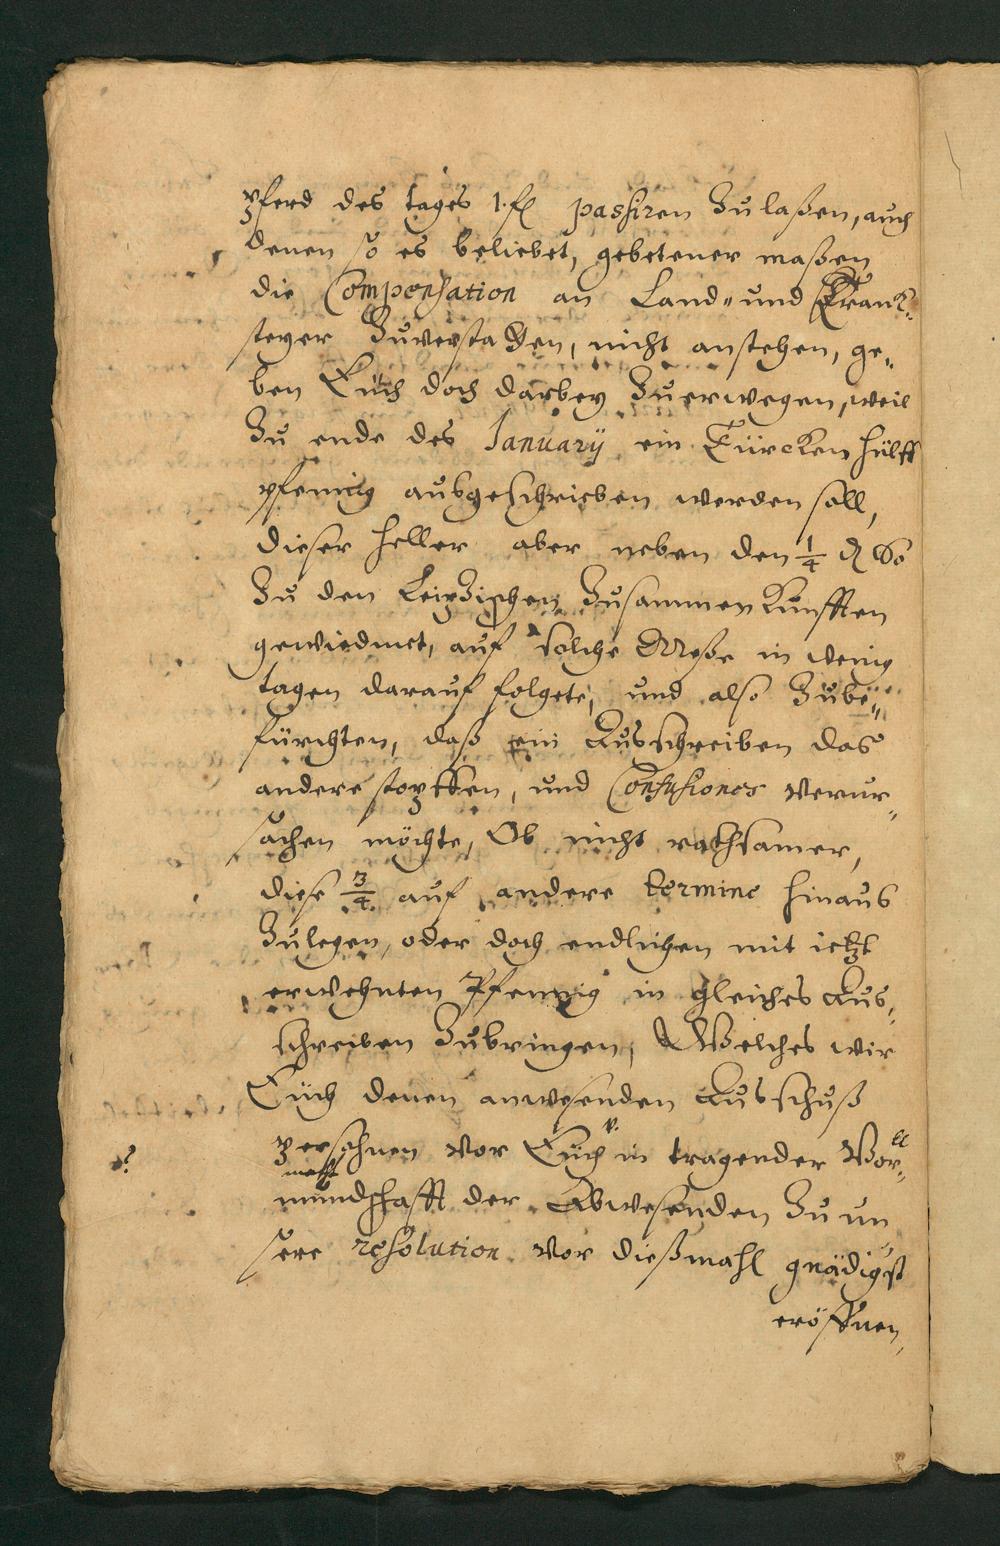 pferd des tages 1. fl passiren Zulaßen, auch
denen so es beliebet, gebetener maßen
die Compensation an Land- und Tranck-
steyer Zuverstaden, nicht anstehen, ge-
ben Euch doch darbey Zu erwegen, weil
Zu ende des January ein Türcken hülff
pfennig außgeschrieben werden soll,
dieser heller aber neben den 1/4 d so
Zu den Leipzischen Zusammen Kunfften
gewiedmet, auf solche Meße in wenig
tagen darauf folgete, und also Zube-
fürchten, daß ein Ausschreiben das
andere stopffen, und Confusiones verur-
sachen möchte, Ob nicht rathsamer,
diese 3/4 auf andere termine hinaus
Zulegen, oder doch endlichen mit ietzt
erwehnten Pfennig in gleiches Aus-
schreiben Zubringen, Welches wir
Euch denen anwesenden Ausschuß
persohnen vor Euch v. in tragender Voll
macht Vor-
mundschafft der Abwesenden Zu un
sere resolution vor dießmahl gnädigst
eröffnen,